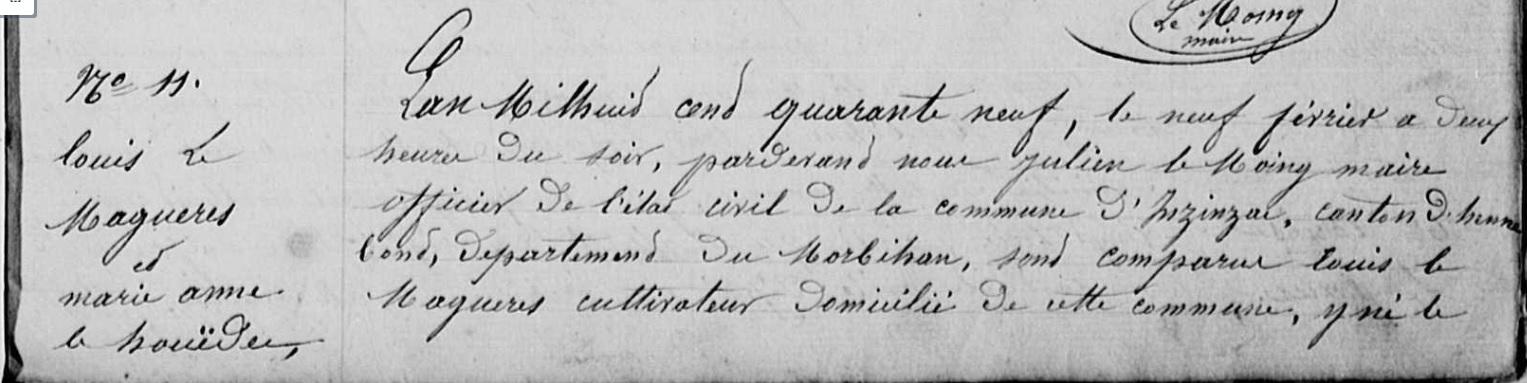 Le Moing
maire
No 11.
louis Le
Magueres
et
marie anne
le houëdec,
Lan Milhuid cend quarante neuf, le neuf février a deux
heure du soir, pardevand nous julien le Moing maire
officier de l'état civil de la commune d'Inzinzac, canton d'henne
bond, departemend du Morbihan, sond comparus Louis le
Magueres cultivateur domicilié de cette commune, y né le